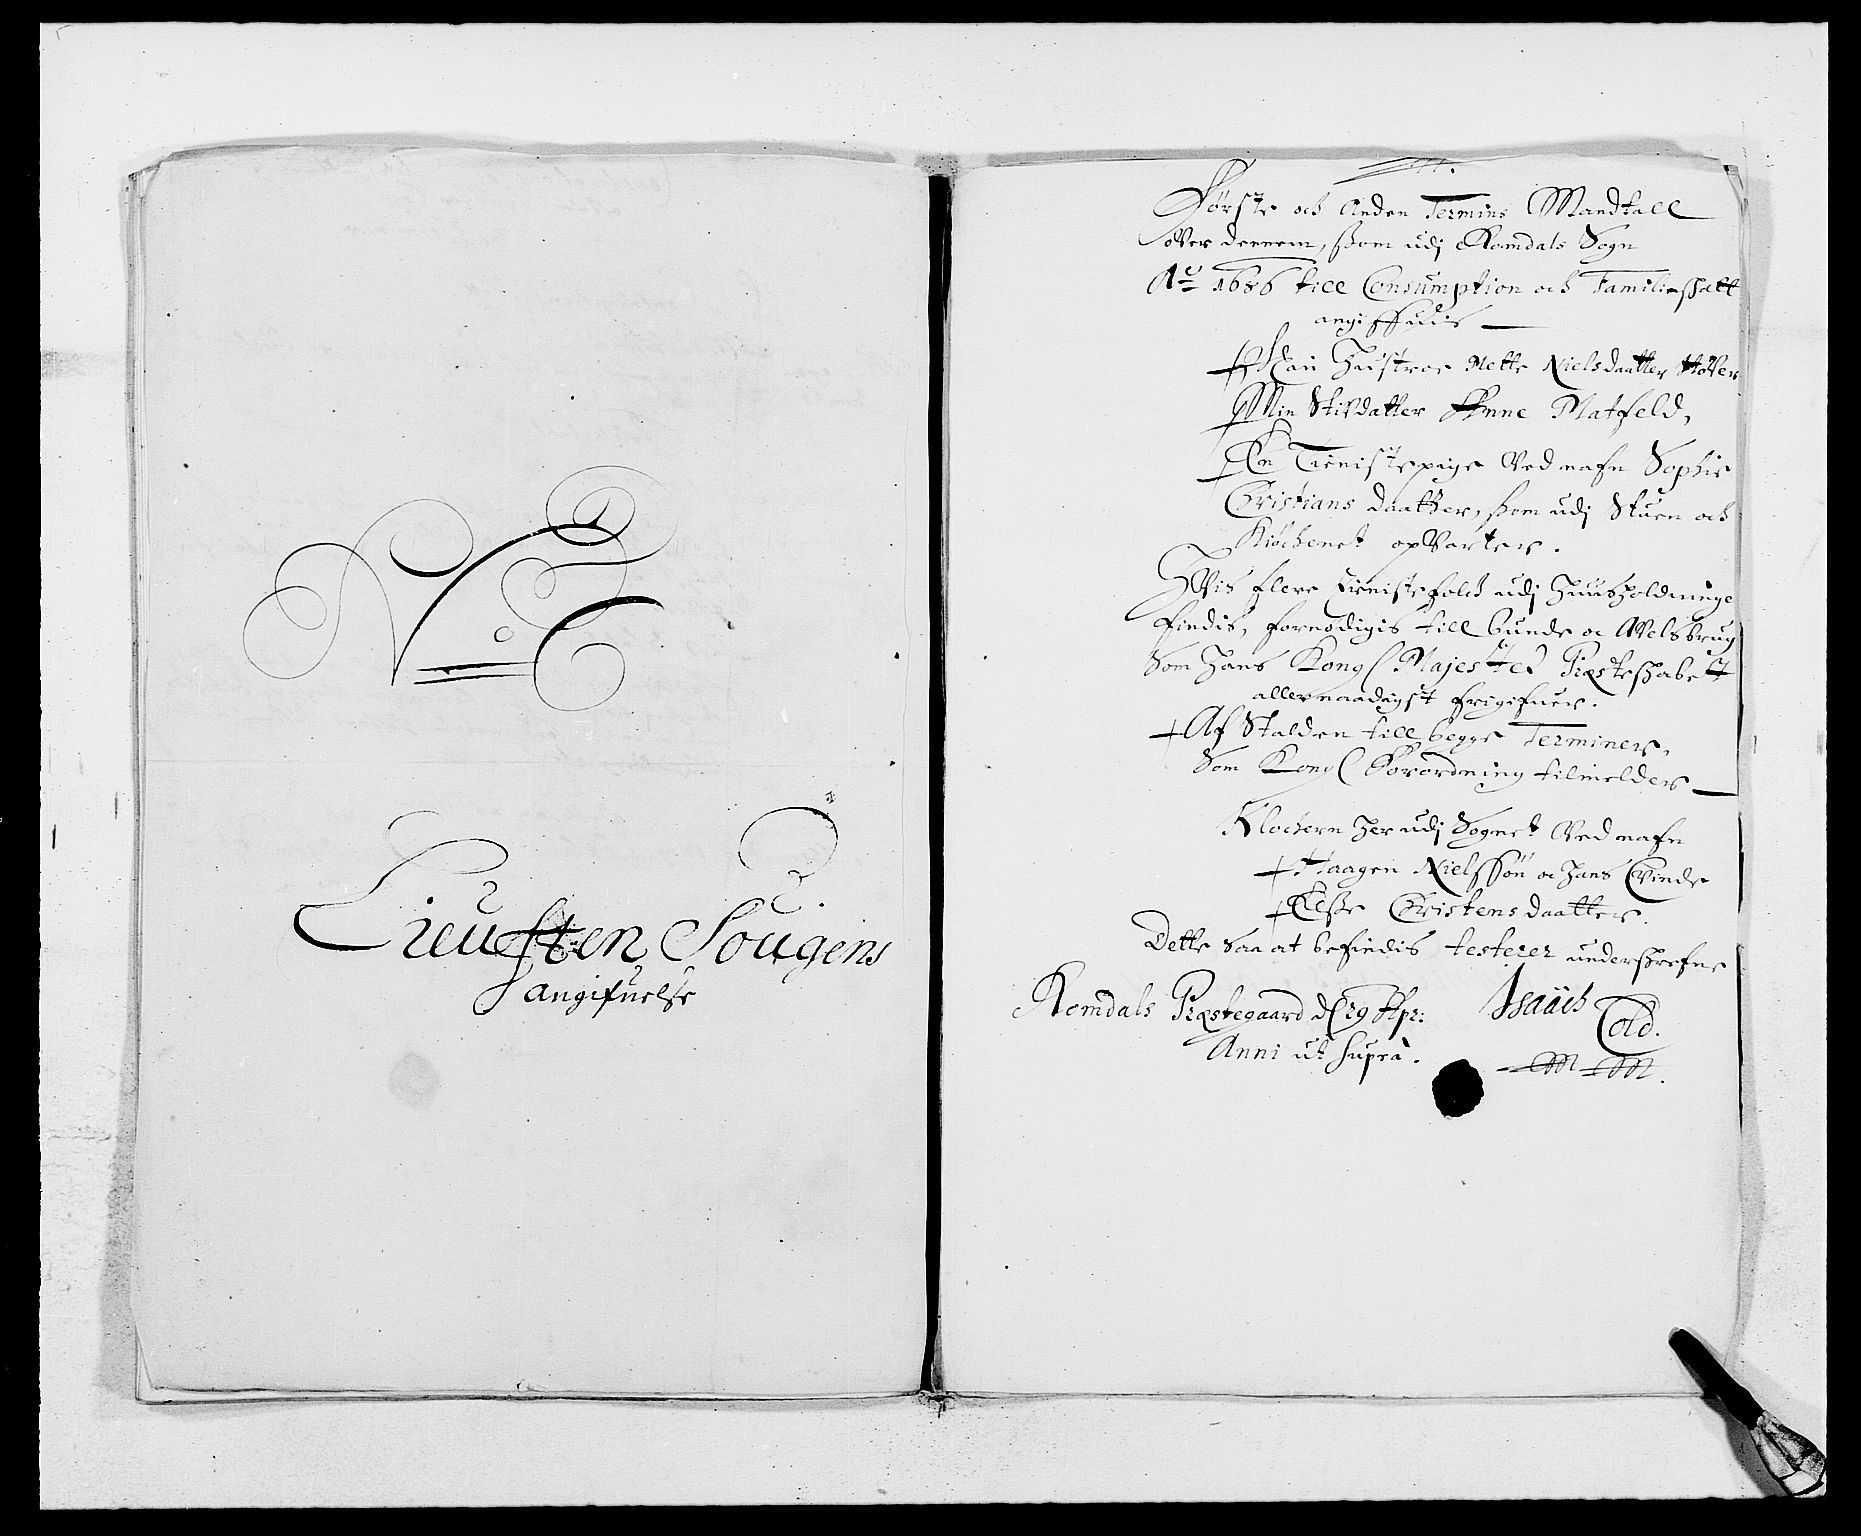 No
Lieusten Sougens
Angifuelse
Første och Anden Termins Mandtall
over dennem, som udj Romdals Sogn
Ao 1686 till Consumption och Familieskatt
angiffuis
Mai Hustroe Mette Nielsdaatter Høver
Min Stifdatter Anne Matfeld,
En Tienistepige Ved nafn Sophie
Christians daatter, som udj Stuen och
Kiøchenet opVarter.
HVis flere tienistefolch udj Huusholdninge
findis, fornødigis till bunde oc AVelsbrug
Som Hans Kongl Majestet Præsteskabett
allernaadigst frigifuer.
Af Stalden till begge Terminer,
Som Kongl Forordning tilmelder
Klochern her udj Sognet Ved nafn
Haagen Nielssøn oc hans Qvinde
Elsse Christensdaatter.
Dette saa at befindis testerer underskrefne
Romdals Præstegaard d 29 Apr:
Anni ut supra.
Isaach
Cold.